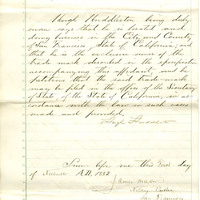 Hugh Huddleston being duly
sworn says that he is located and
doing business in the City and County
of San Francisco State of California; and
that he is the exclusive owner of the
trade mark described in the
accompanying this affidavit, and he
that the said trade mark
may be filed in the office of the Secretary
of State, of the State of California, in ac-
cordance with the law in such cases
made and provided.
Sworn before me this
day
of A.D. 1882
Notary Public
San Francisco